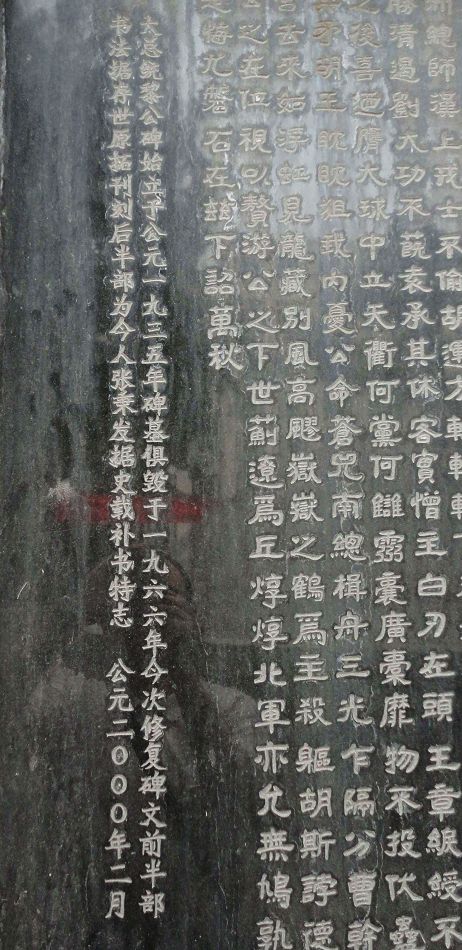 總師漢上戎士不倫胡運方
勝清過劉大功不蓺袁承其休客實憎主白刃在頭王章綬不
之後喜膺大球中立天衢何黨何讎囊廣橐靡物不投伏蠱
胡王眈眈狙我内憂公命蒼兕南總楫舟三光乍隔分曹幹
去來如浮虹見龍藏别風高飂嶽嶽之鶴爲主殺軀胡斯誖德
之在位視以贅游公之下世薊遼爲丘焞焞北軍亦允無鳩孰
九磐石在兹下詔萬秋
大总统黎公碑始立于公元一九三五年碑墓俱毁于一九六六年今次修复碑文前半部
书法据存世原拓刊刻后半部为今人张秉发据史载补书特志 公元二〇〇〇年二月